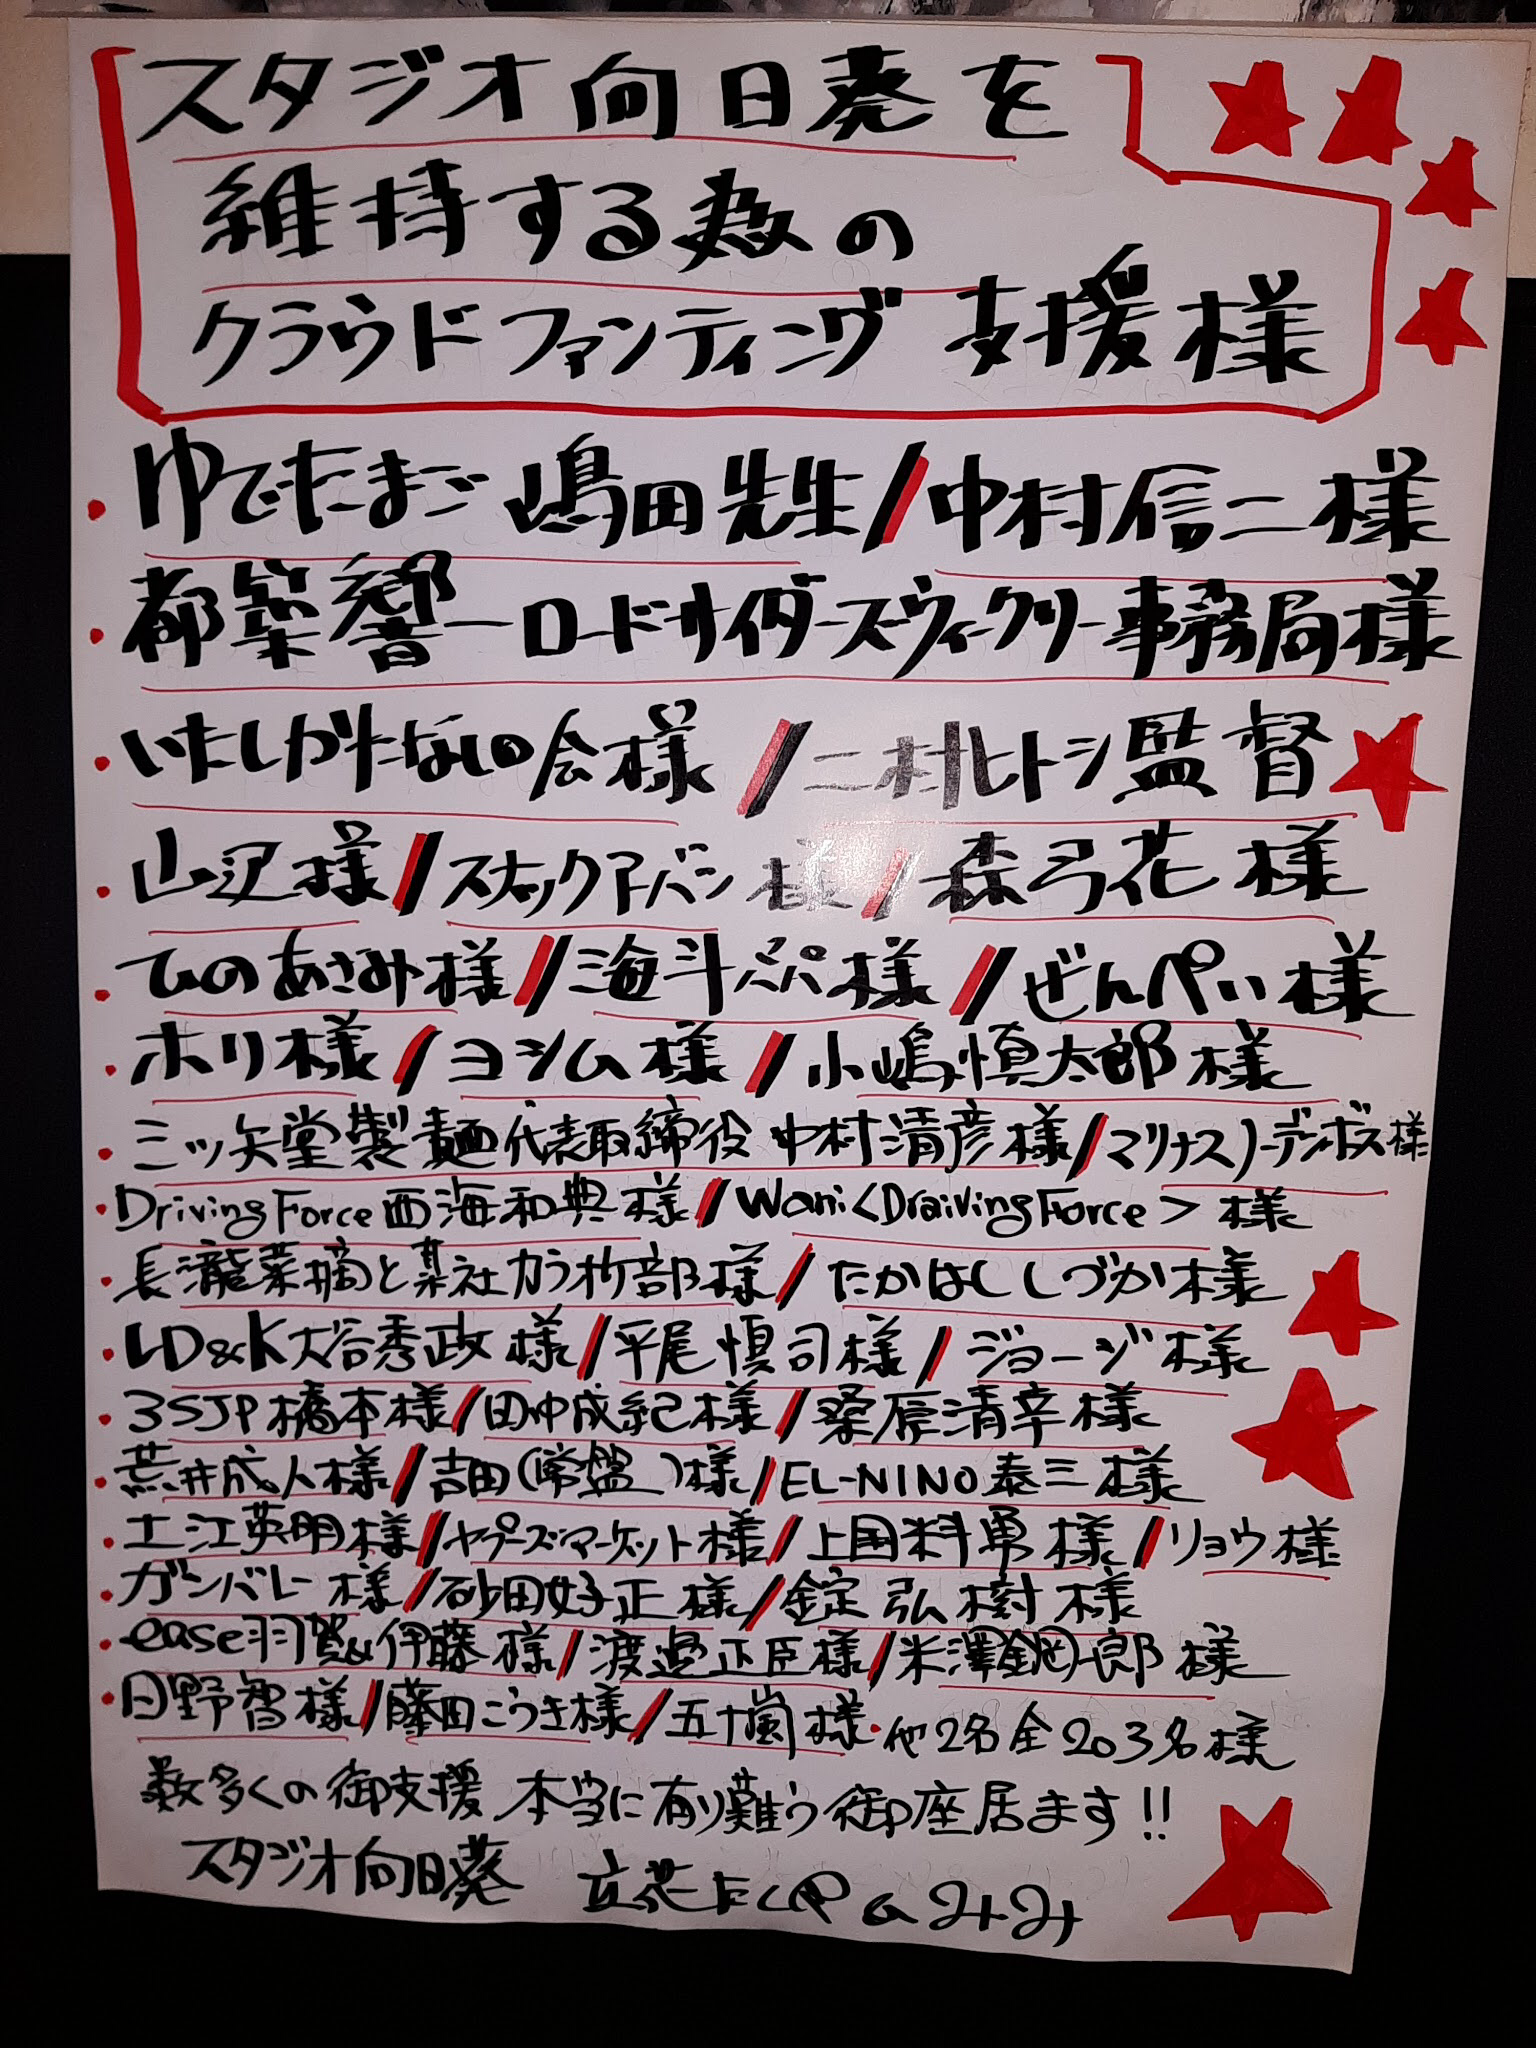 スタジオ向日葵を
維持する為の
クラウドファンディング支援様
・ゆでたまご 嶋田先生/中村信二様
・都築響一ロードサイダーズウィークリー事務局様
・いたしかたないの会様/二村ヒトシ監督
・山沢様/スナックアーバン様/森弓花様
・ひのあさみ様/海斗パパ様/ぜんぺい様
・ホリ様/ヨシム様/小嶋慎太郎様
・三ツ矢堂製麺代表取締役 中村清彦様/マリナスノーデンボス様
・DrivingForce西海和典様/Wani<DraivingForce>様
・長瀧菜摘と某社カラオケ部様/たかはししづか様
・LD&K大谷秀政様/平尾慎司様/ジョージ様
・3SJP橋本様/田中成紀様/桑原清幸様
・荒井成人様/吉田(常盤)様/EL-NINO泰三様
・土江英明様/ヤプーズ・マーケット様/上国料勇様/リョウ様
・ガンバレー様/砂田好正様/錠弘樹様
・ease羽賀&伊藤様/渡邉正臣様/米澤鋼一郎様
・日野智様/藤田こうき様/五十嵐様・他2名全203名様
数多くの御支援 本当に有り難う御座居ます!!
スタジオ向日葵 立花&みみ